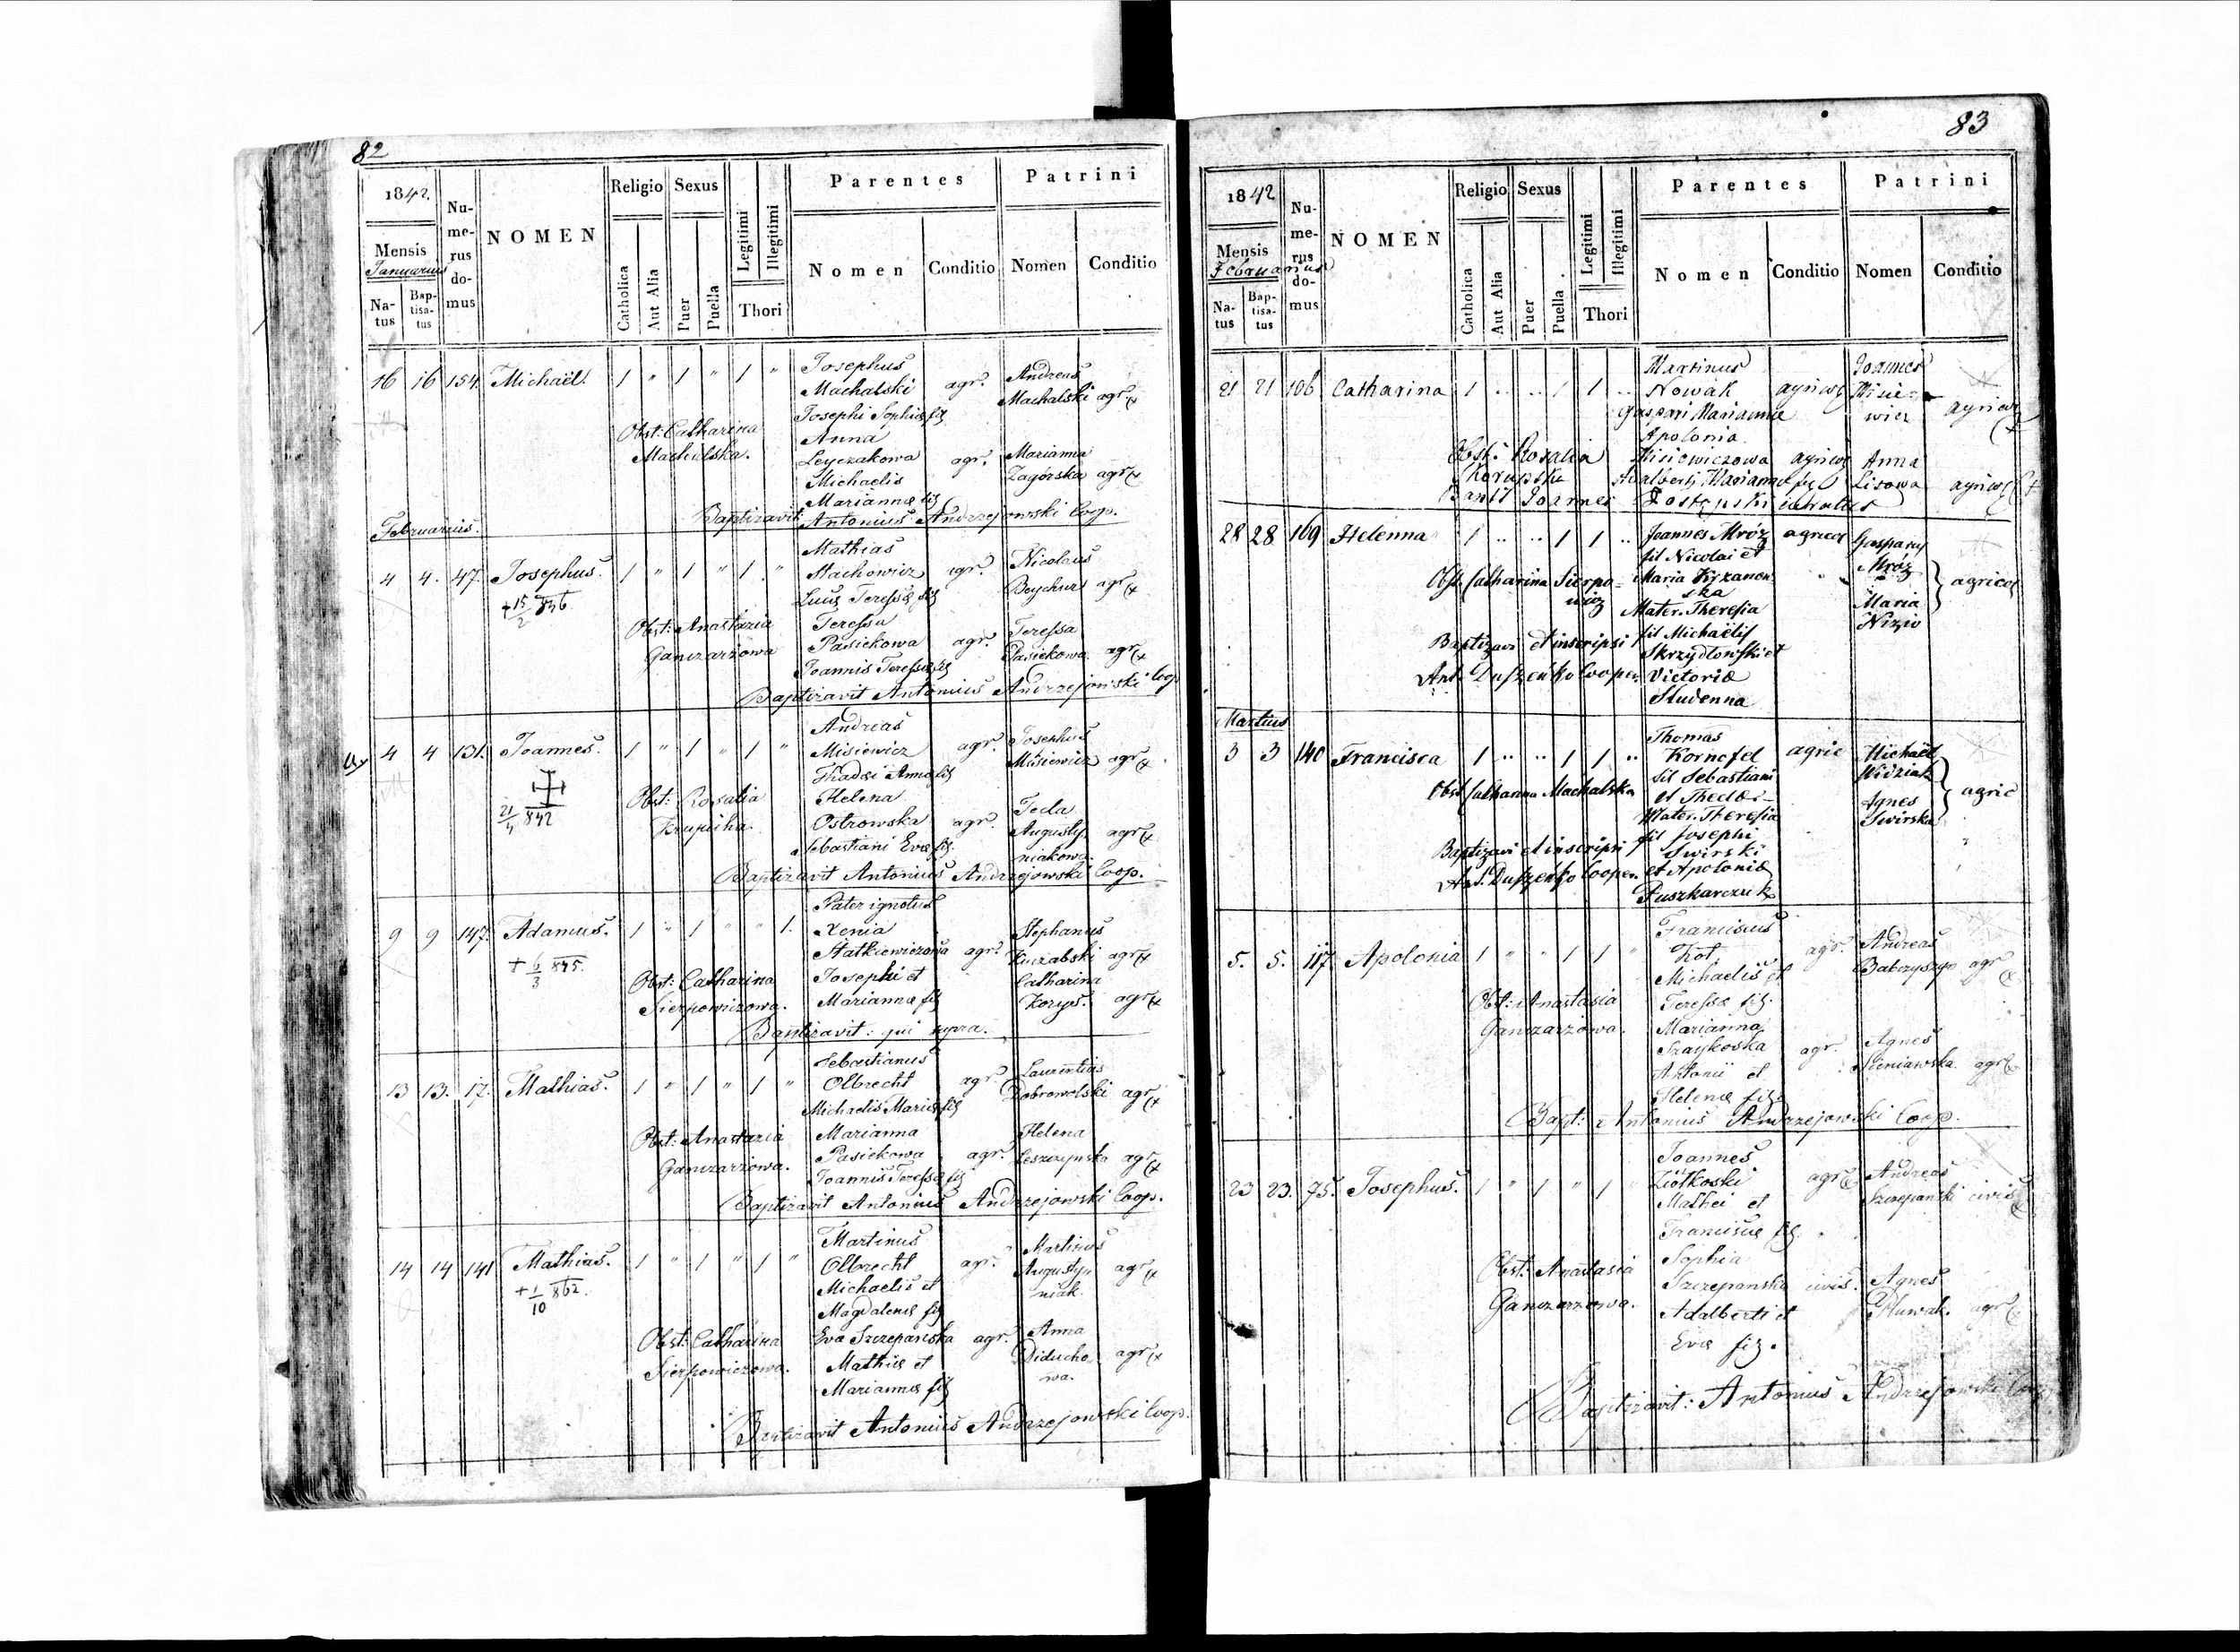 82
1842.
Mensis
Januarius
Natus
Baptisatus
Numerus domus
NOMEN
Religio
Catholica
Aut Alia
Sexus
Puer
Puella
Legitimi
Illegitimi
Thori
Parentes
Nomen
Conditio
Patrini
Nomen
Conditio
16 16 154. Michaël. 1 " 1 " 1 "
Josephus
Machalski agr.
Josephi Sophiæ fil
Anna
Leyczakowa agr.
Michaelis
Mariannæ fil
Andreas
Machalski agr
Marianna
Zagórska agr
Obst: Catharina
Machalska.
Baptizavit: Antonius Andrzejowski Coop.
Februarius.
4 4. 47. Josephus. 1 " 1 " 1 "
+ 15/2 846
Mathias
Stachowicz agr.
Lucæ Teressæ fil
Teressa
Pasiekowa agr.
Joannis Teressæ fil
Nicolaus
agr
Teressa
Pasiekowa agr
Obst: Anastazia
Ganczarzowa
Baptizavit Antonius Andrzejowski Coop
4 4 131. Joannes. 1 " 1 " 1 "
21/4 842
Andreas
Misiewicz agr.
Thadei Annæ fil
Helena
Ostrowska agr.
Sebastiani Evæ fil.
Josephus
Misiewicz agr
Tecla
Augustyniakowa agr
Obst: Rosalia
Krupicha
Baptizavit Antonius Andrzejowski Coop.
9 9 147. Adamus. 1 " 1 " " 1.
+ 6/3 845.
Pater ignotus
Xenia
Statkiewiczowa agr.
Josephi et
Mariannæ fil
Stephanus
agr
Catharina
agr
Obst: Catharina
Sierpowiczowa.
Baptizavit: qui supra.
13 13. 17. Mathias. 1 " 1 " 1 "
Sebastianus
Olbrecht agr.
Michaelis Mariæ fil
Marianna
Pasiekowa agr.
Joannis Teressæ fil
Laurentius
Dobrowolski agr
Helena
Leszczynska agr
Obst: Anastazia
Ganczarzowa.
Baptizavit Antonius Andrzejowski Coop.
14 14 141 Mathias. 1 " 1 " 1 "
+ 1/10 862.
Martinus
Olbrecht agr.
Michaelis et
Magdalenæ fil
Eva Szczepanska agr.
Mathiæ et
Mariannæ fil
Martinus
Augustyniak. agr
Anna
Diduchowa. agr
Obst: Catharina
Sierpowiczowa.
Baptizavit Antonius Andrzejowski Coop.
83
1842
Mensis
Februarius
Natus
Baptisatus
Numerus domus
NOMEN
Religio
Catholica
Aut Alia
Sexus
Puer
Puella
Legitimi
Illegitimi
Thori
Parentes
Nomen
Conditio
Patrini
Nomen
Conditio
21 21 106 Catharina 1 .. .. 1 1 ..
Martinus
Nowak
Gaspari Mariannæ
Apolonia
Misiewiczowa
Adalberti Mariannæ fil
Joannes
Misiewicz
Anna
Lisowa
Obst: Rosalia
Krupska
Joannes
28 28 169 Helenna 1 .. .. 1 1 ..
Joannes Mróz agricol
fil Nicolai et
Maria Kyzanowska
Mater. Theresia
fil Michaëlis
Skrzydłowski et
Victoriæ
Studenna
Mróz
Maria
Nizio
agricol
Obst. Catharina Sierpowicz
Baptizavi et inscripsi
Ant. Duszeńko Cooper.
Martius
3 3 140 Francisca 1 .. .. 1 1 ..
Thomas
Kornafel agric
fil Sebastiani
et Theclæ
Mater. Theresia
fil Josephi
Swirski
et Apoloniæ
Puszkarczuk
Michaël
Widziak
Agnes
Swirska
agric
Obst Catharina Machalska
Baptizavi et inscripsi
Ant. Duszeńko Cooper.
5. 5. 117. Apolonia 1 " " 1 1 "
Franciscus
Kot agr.
Michaelis et
Teressæ fil.
Marianna
Szaykoska agr.
Antonii et
Helenæ fil.
Andreas
Babczyszyn agr
Agnes
Sieniawska agr
Obst: Anastasia
Ganczarzowa.
Bapt: Antonius Andrzejowski Coop.
23 23. 75. Josephus. 1 " 1 " 1 "
Joannes
Ziółkoski agr
Mathei et
Franciscæ fil.
Sophia
Szczepanska civis.
Adalberti et
Evæ fil.
Andreas
Szczepanski civis
Agnes
agr
Obst: Anastasia
Ganczarzowa.
Baptizavit: Antonius Andrzejowski Coop